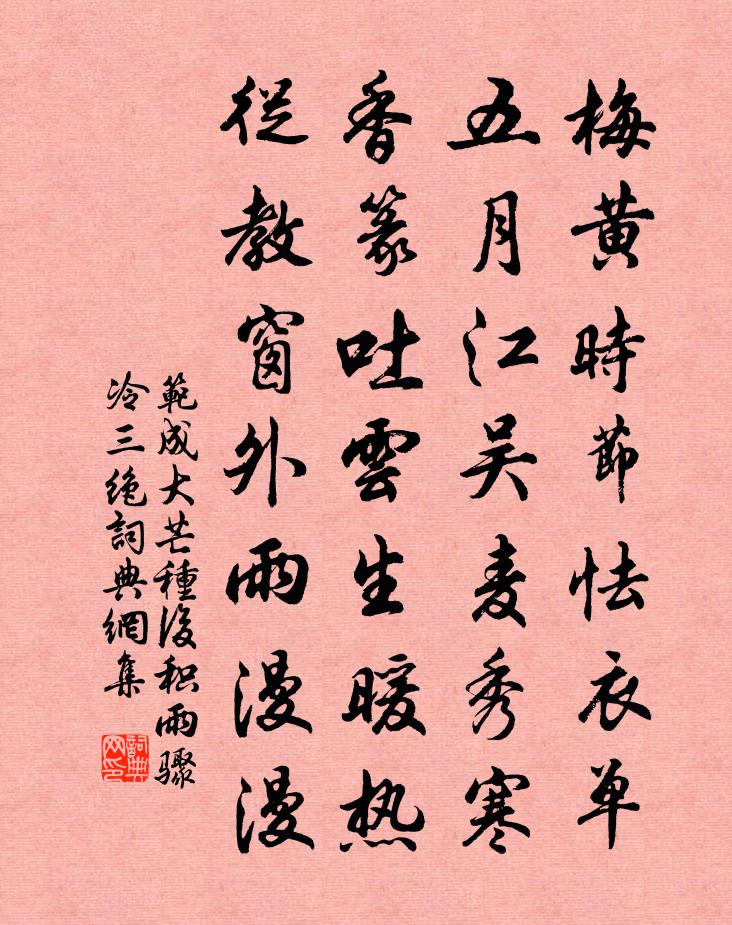 梅黄時節怯衣单
五月江吴麦秀寒
香篆吐雲生暖热
從教窗外雨漫漫
範成大芒種後积雨驟
冷三绝詞典網集
詞典
网印